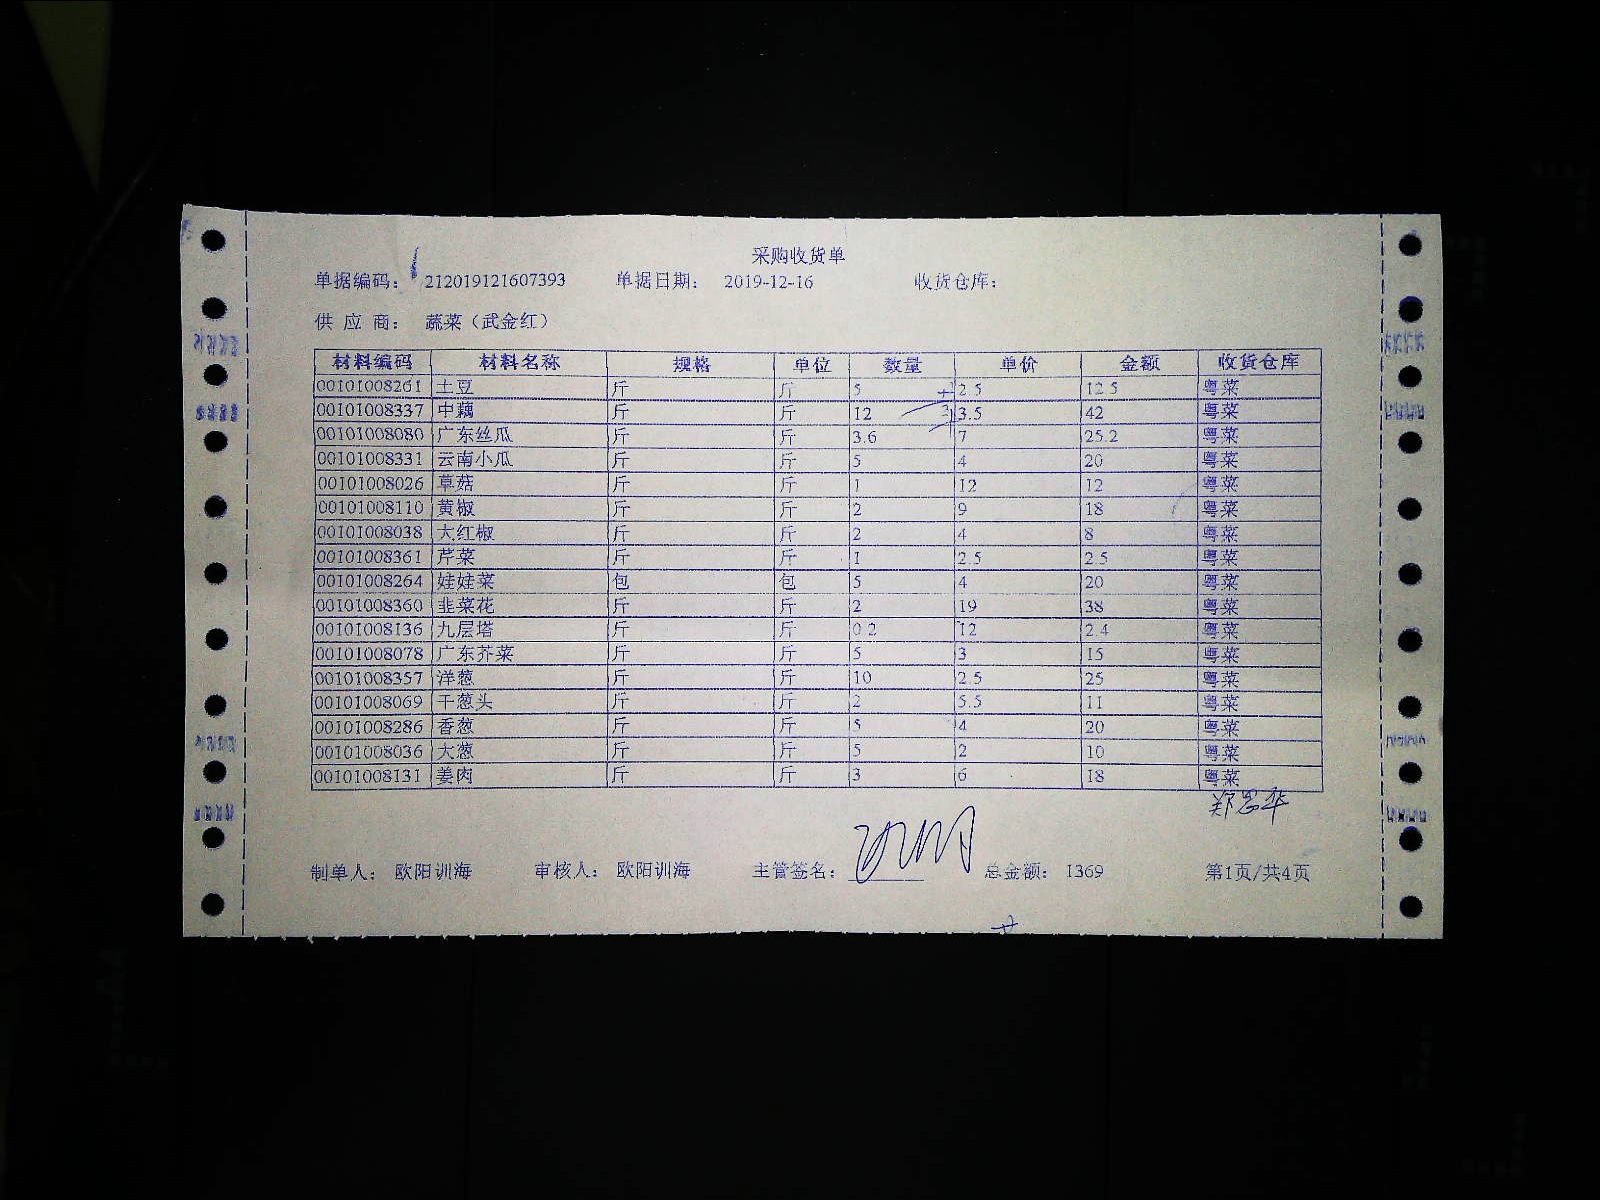 采购收货单
单据编码： 212019121607393 单据日期： 2019-12-16 收货仓库：
供 应 商： 蔬菜（武金红）
材料编码 材料名称 规格 单位 数量 单价 金额 收货仓库
00101008261 土豆 斤 斤 5 2.5 12.5 粤菜
00101008337 中藕 斤 斤 12 3.5 42 粤菜
00101008080 广东丝瓜 斤 斤 3.6 7 25.2 粤菜
00101008331 云南小瓜 斤 斤 5 4 20 粤菜
00101008026 草菇 斤 斤 1 12 12 粤菜
00101008110 黄椒 斤 斤 2 9 18 粤菜
00101008038 大红椒 斤 斤 2 4 8 粤菜
00101008361 芹菜 斤 斤 1 2.5 2.5 粤菜
00101008264 娃娃菜 包 包 5 4 20 粤菜
00101008360 韭菜花 斤 斤 2 19 38 粤菜
00101008136 九层塔 斤 斤 0.2 12 2.4 粤菜
00101008078 广东芥菜 斤 斤 5 3 15 粤菜
00101008357 洋葱 斤 斤 10 2.5 25 粤菜
00101008069 干葱头 斤 斤 2 5.5 11 粤菜
00101008286 香葱 斤 斤 5 4 20 粤菜
00101008036 大葱 斤 斤 5 2 10 粤菜
00101008131 姜肉 斤 斤 3 6 18 粤菜
制单人： 欧阳训海 审核人： 欧阳训海 主管签名： 总金额： 1369 第1页/共4页